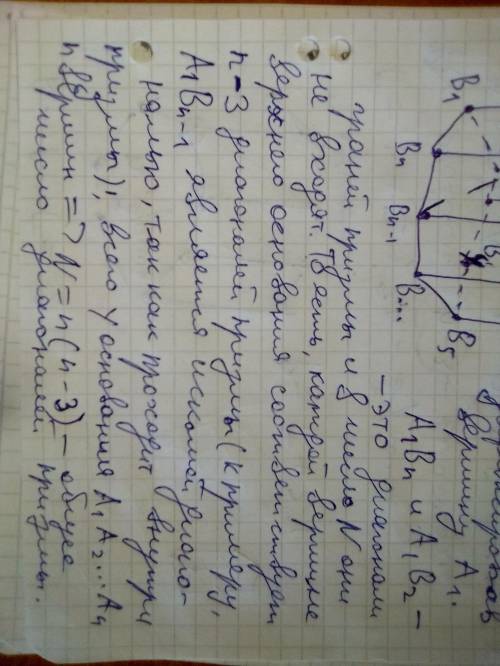 вершину A₁.
A₁Bₙ и A₁B₂ –
– это диагонали
граней призмы и в число N они
не входят. То есть, каждой вершине
верхнего основания соответствует
n – 3 диагоналей призмы (к примеру,
A₁Bₙ₋₁ является искомой диаго-
налью, так как проходит внутри
призмы); всего у основания A₁A₂...Aₙ
n вершин => N = n(n-3) – общее
число диагоналей призмы.
B₁
Bₙ
Bₙ₋₁
B...
B₅